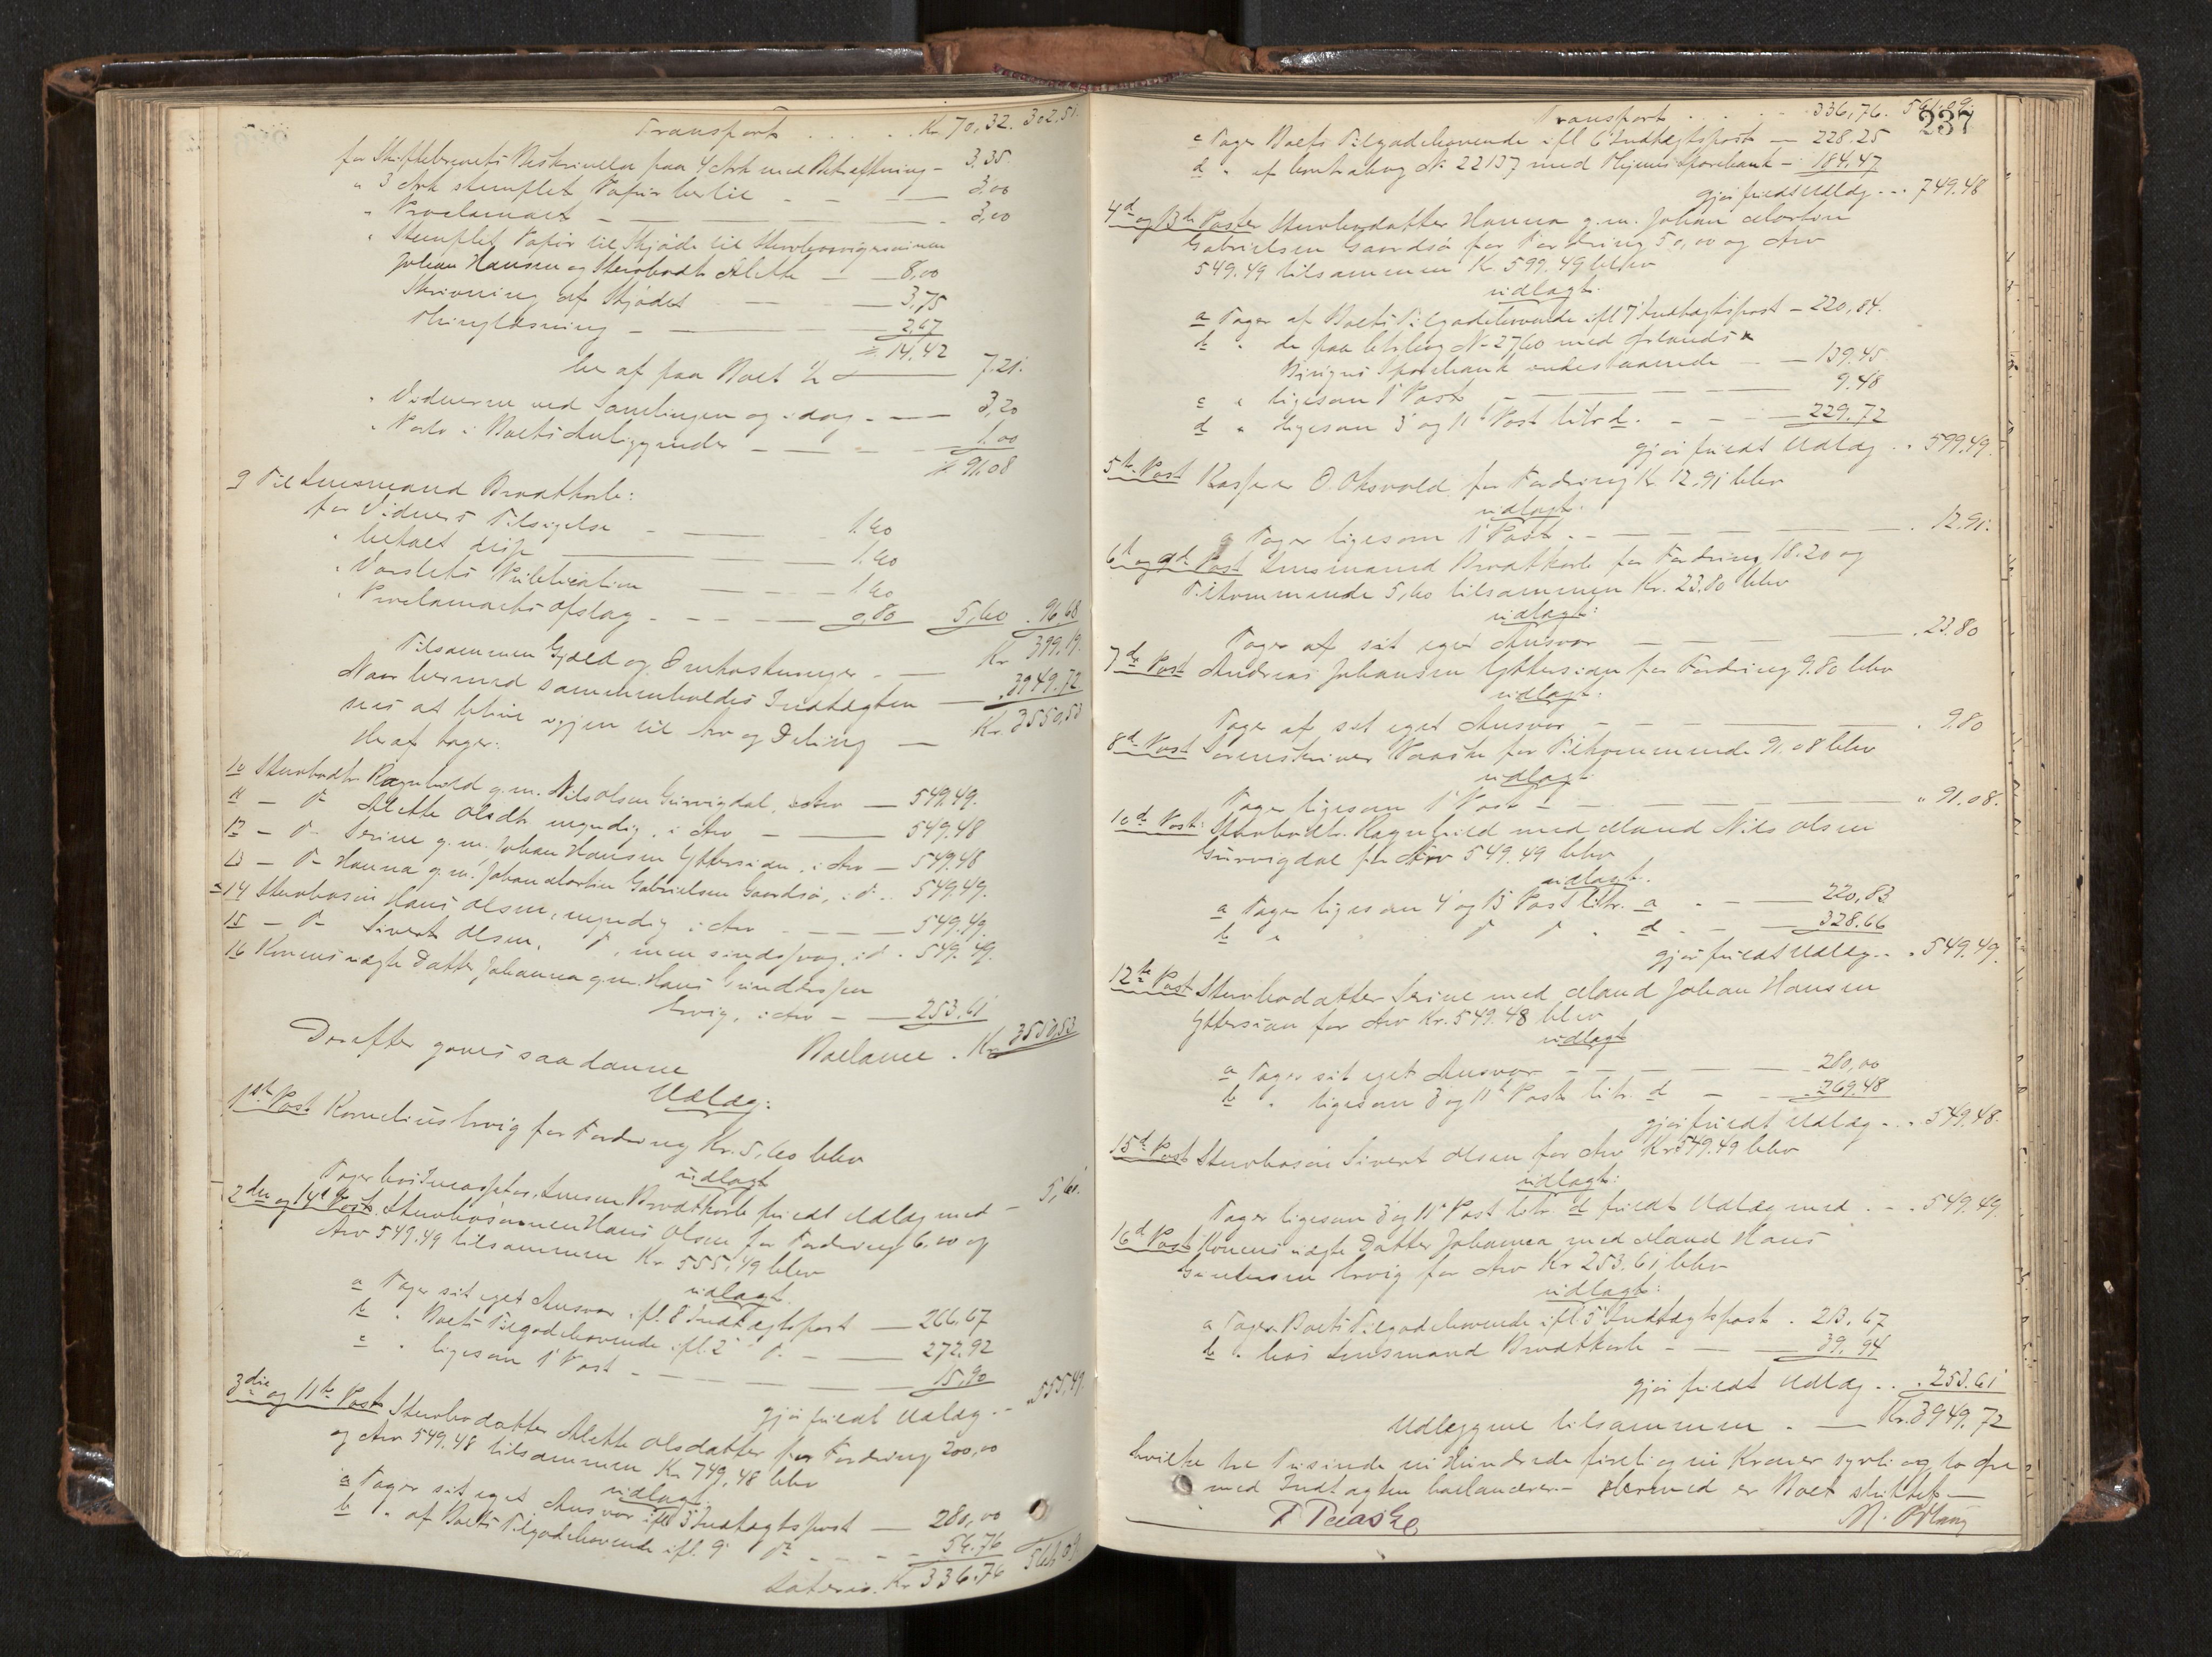 Transport . . . . . Kr. 70,32. 302.51.
for Skiftebrevets Beskrivelse paa 4 Ark med Bekræftning - 3.35.
" 3 Ark stemplet Papir hertil - - - 3,00
" Proclamaet - - - 3,00
" Stemplet Papir til Skjøde til
Johan Hansen og Sterbodt. Alette - 8,00
Skrivning af Skjødet - 3,75
Thinglæsning - 2,67
14,42
her af paa Boet ½ 7.21.
" Vidnerne ved Samlingen og idag - - 3,20
" Porto i Boets Anliggender - - 1.00
91.08
9 Til Lensmand Brodtkorb:
for Vidners Tilsigelse - 1.40
" betalt disse - 1.40
" Varslets Publikation - 1.40
" Proclamaets Opslag - - - 0,80 5,60 . 96,68
Tilsammen Gjæld og Omkostninger - Kr 399.19.
Naar hermed sammenholdes Indtægten - 3949.72
sees at blive igjen til Arv og Deling - Kr. 3550,53
Heraf tager:
10 Sterbodtr. Ragnhild g. m. Nils Olsen Gurvigdal, i Arv - 549,49.
11 - d° Alette Olsdtr. myndig, i Arv - 549.48
12 - d° Serine g. m. Johan Hansen Yttersian, i Arv - 549.48
13 - d° Hanna g. m. Johan Martin Gabrielsen Gaardsø, i d° . . 549,49.
14 Sterbosøn Hans Olsen, myndig i Arv - - - 549.49.
15 - d° Sivert Olsen, d°, men sindssvag, i d° . 549.49.
16 Konens uægte Datter Johanna g. m. Hans Gundersen
i Arv - 253.61
Balance . Kr 3550,53
Derefter gaves saadanne
Udlæg:
1ste Post Kornelius for Fordring Kr. 5,60 blev
udlagt
Tager hos Lensm. Brodtkorb fuldt Udlæg med - 5,60.
2den og 14de Post. Sterbosønnen Hans Olsen for Fordring 6.00 og
Arv 549.49 tilsammen Kr 555,49 blev
udlagt.
a Tager sit eget Ansvar ifl. 8 Indtægtspost - 266.67
b " Boets Tilgodehavende ifl. 2 d° - 272.92
c " ligesom 1' Post - - - 15,90
gjør fuldt Udlæg . - " 555,49.
3die og 11te Post Sterbodatter Alette Olsdatter for Fordring 200,00
og Arv 549.48 tilsammen Kr 749,48 blev
udlagt.
a Tager sit eget Ansvar ifl 3' Indtægtspost - 280,00
b " af Boets Tilgodehavende ifl. 9' d° - - - 56.76
Lateris. Kr 336.76 561.09
237
Transport . . . - 336,76. 561.09.
c Tager Boets Tilgodehavende ifl 6' Indtægtspost - 228.25
d " af Contrabog N° 22137 med Sparebank - 184.47
gjør fuldt Udlæg - - 749.48
4d og 13de Poster Sterbodatter Hanna g. m. Johan Martin
Gabrielsen Gaardsø for Fordring 50,00 og Arv
549.49 tilsammen Kr. 599.49 blev
udlagt.
a Tager af Boets Tilgodehavende ifl 7' Indtægtspost - 220,84.
b " de paa N° 2760 med Ørlands &
Sparebank indestaaende - - 139.45
c " ligesom 1' Post - 9.48
d " ligesom 3' og 11' Post litr d. - - 229.72
gjør fuldt Udlæg . . 599.49.
5te Post Kasper O. Oksvold, for Fordring Kr. 12.91 blev
udlagt.
Tager ligesom 1' Post . - - - . 12.91.
6t og 9de Post Lensmand Brodtkorb for Fordring 18.20 og
Tilkommende 5,60 tilsammen Kr. 23.80 blev
udlagt:
Tager af sit eget Ansvar - - - . 23.80
7de Post Andreas Johansen Yttersian for Fordring 9.80 blev
udlagt:
Tager af sit eget Ansvar - - - . 9.80
8d Post Sorenskriver Paaske for Tilkommende 91.08 blev
udlagt
Tager ligesom 1' Post - - - " 91.08.
10d Post: Sterbodtr. Ragnhild med Mand Nils Olsen
Gurvigdal for Arv 549.49 blev
udlagt.
a Tager ligesom 4' og 13' Post litr. a - - 220,83
b " d° d° " d - - 328.66
gjør fuldt Udlæg . . . 549.49.
12te Post Sterbodatter Serine med Mand Johan Hansen
Yttersian for Arv Kr. 549.48 blev
udlagt
a Tager sit eget Ansvar - - - 280,00
b " ligesom 3' og 11' Post litr. d - - 269.48
gjør fuldt Udlæg - . . 549.48.
15d Post Sterbosøn Sivert Olsen for Arv Kr 549.49 blev
udlagt:
Tager ligesom 3' og 11' Post litr. d fuldt Udlæg med . - . 549.49.
16d Post Konens uægte Datter Johanna med Mand Hans
Gundersen for Arv Kr 253,61 blev
udlagt:
a Tager Boets Tilgodehavende ifl. 5' Indtægtspost . 213,67
b " hos Lensmand Brodtkorb - - 39.94
gjør fuldt Udlæg . . . 253.61
Udlæggene tilsammen . - Kr. 3949.72
hvilke tre Tusinde ni Hundrede firti og ni Kroner sytti og to Øre
med Indtægten balancerer. - Hermed er Boet sluttet. -
T Paaske